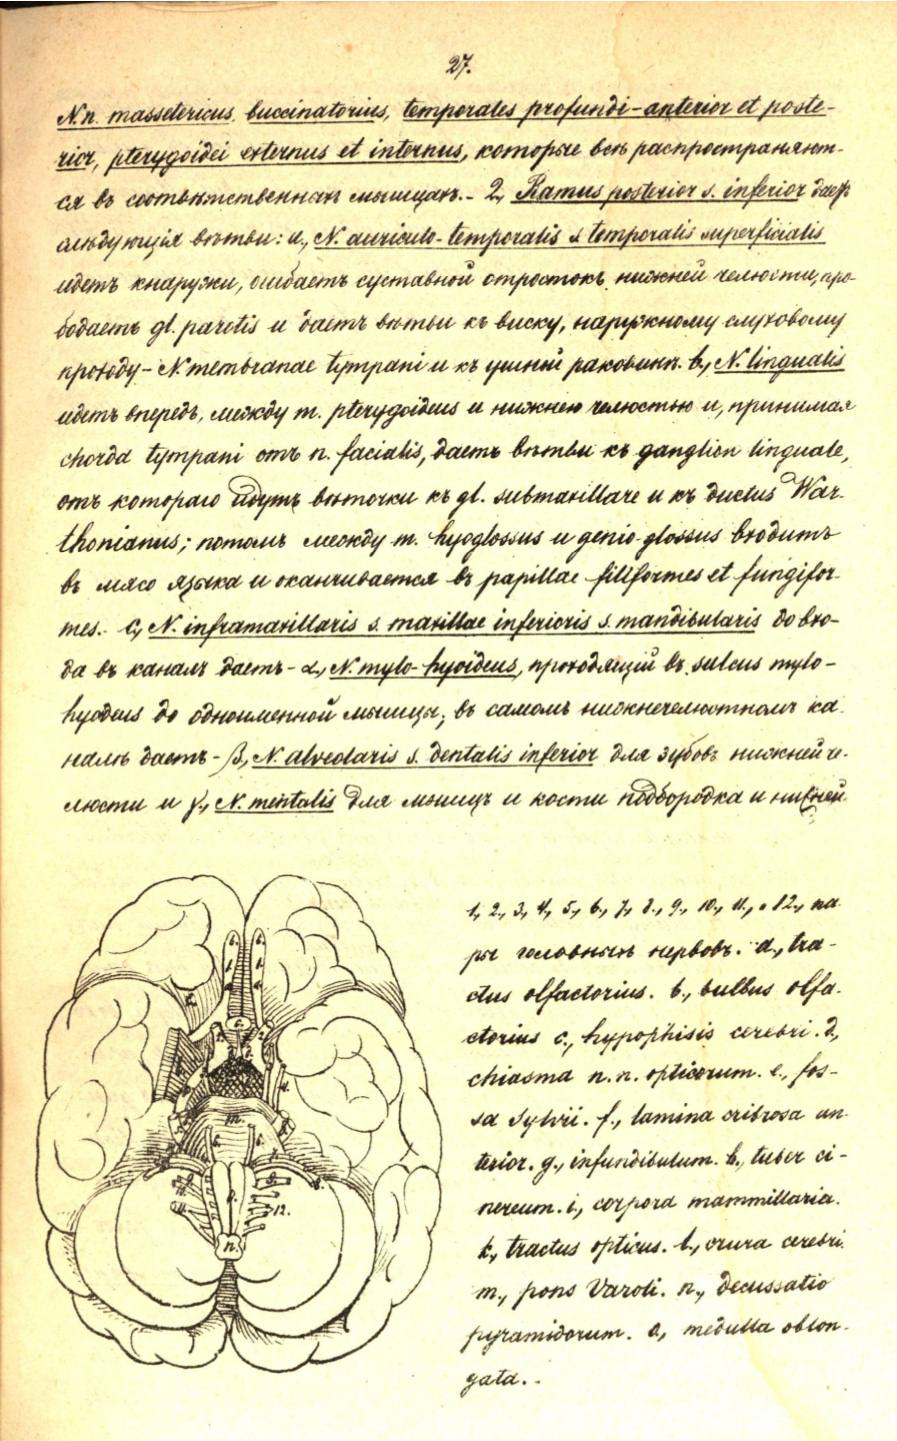 27.
N.n. massetericus, buccinatorius, temporales profundi-anterior et poste-
rior, pterygoidei externus et internus, которые всѣ распространяют-
ся въ соотвѣтственных мышцахъ.- 2, Ramus posterior s. inferior даетъ
слѣдующія вѣтви: a, N. auriculo-temporalis s temporalis superficialis
идетъ кнаружи, огибаетъ суставной отростокъ нижней челюсти, про-
бодаетъ gl. parotis и даетъ вѣтви къ виску, наружному слуховому
проходу - N. membranae tympani и къ ушной раковинѣ. b., N. lingualis
идетъ впередъ, между m. pterygoideus и нижнею челюстью и, принимая
chorda tympani отъ n. facialis, даетъ вѣтви къ ganglion linguale,
отъ котораго идутъ вѣточки къ gl. submaxillare и къ ductus War-
thonianus; потомъ между m. hyoglossus и genio-glossus входитъ
въ мясо языка и оканчивается въ papillae filiformes et fungifor-
mes. c, N. inframaxillaris s. maxillae inferioris s. mandibularis до вхо-
да въ каналъ даетъ - α, N. mylo-hyoideus, проходящій въ sulcus mylo-
hyodeus до одноименной мышцы; въ самомъ нижнечелюстномъ ка-
налѣ даетъ - β, N. alveolaris s. dentalis inferior для зубовъ нижней че-
люсти и γ., N. mentalis для мышцъ и кости подбородка и нижней
1, 2, 3, 4, 5, 6, 7, 8., 9., 10., 11., 12., па-
ры головныхъ нервовъ. a., tra-
ctus olfactorius. b., bulbus olfa-
ctorius c., hypophisis cerebri. d,
chiasma n.n. opticorum. e., fos-
sa Sylvii. f., lamina cribrosa an-
terior. g., infundibulum. h., tuber ci-
nereum. i., corpora mammillaria.
k., tractus opticus. l., crura cerebri.
m., pons Varoli. n., decussatio
pyramidorum. o, medulla oblon-
gata.-
m.
n.
12.